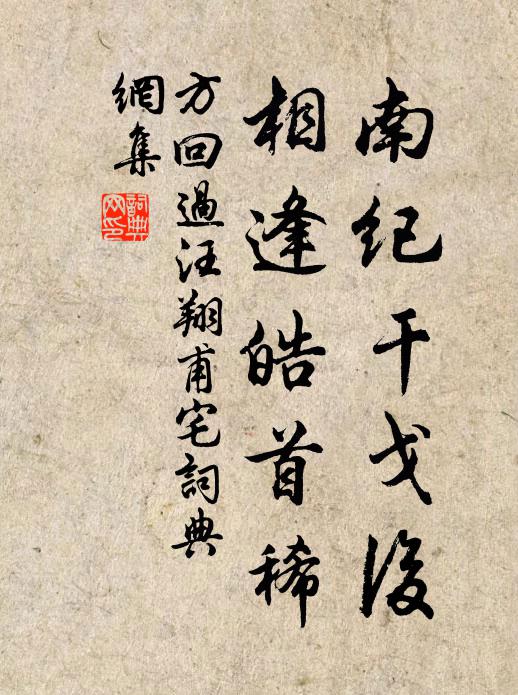 南纪干戈後
相逢皓首稀
方回過汪翔甫宅詞典
網集
詞典網印